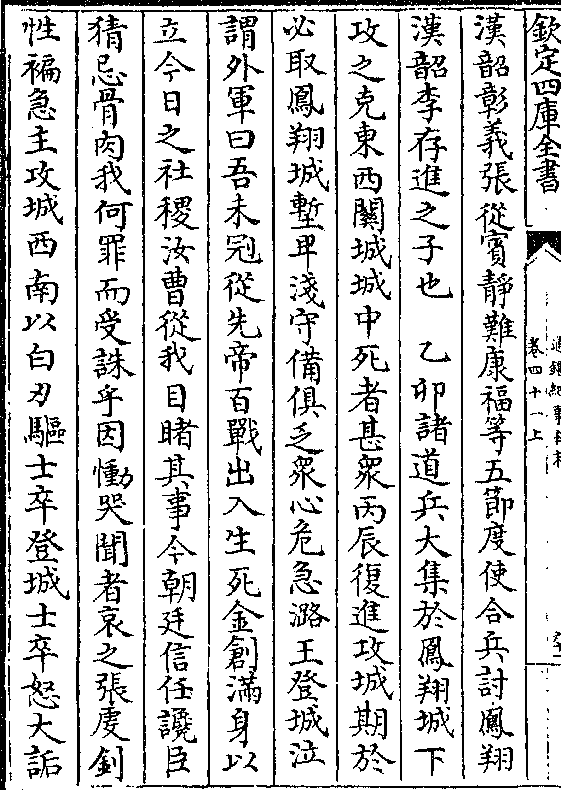 欽定四庫全書
通鑑紀事本末
卷四十一上
漢韶彰義張從賓靜難康福等五節度使合兵討鳳翔
漢韶李存進之子也　乙卯諸道兵大集於鳳翔城下
攻之克東西關城城中死者甚衆丙辰復進攻城期於
必取鳳翔城塹卑淺守備俱乏衆心危急潞王登城泣
謂外軍曰吾未冠從先帝百戰出入生死金創滿身以
立今日之社稷汝曹從我目睹其事今朝廷信任讒臣
猜忌骨肉我何罪而受誅乎因慟哭聞者哀之張虔釗
性褊急主攻城西南以白刃驅士卒登城士卒怒大詬